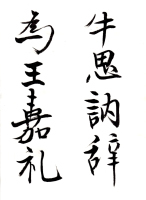 牛思訥辞
為王嘉礼